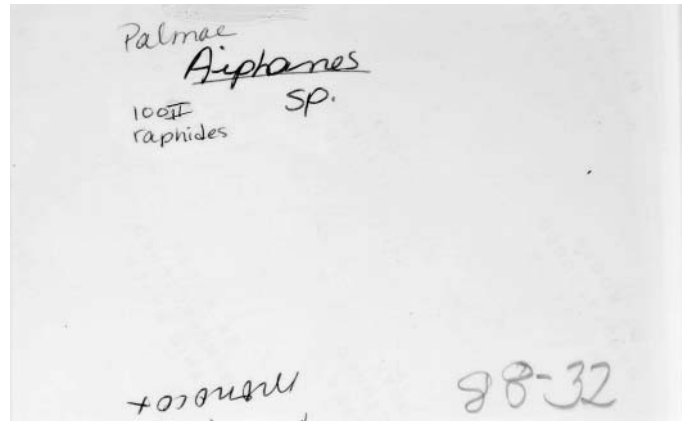 Palmae
Aiphanes
sp.
100II
raphides
88-32
Monocot